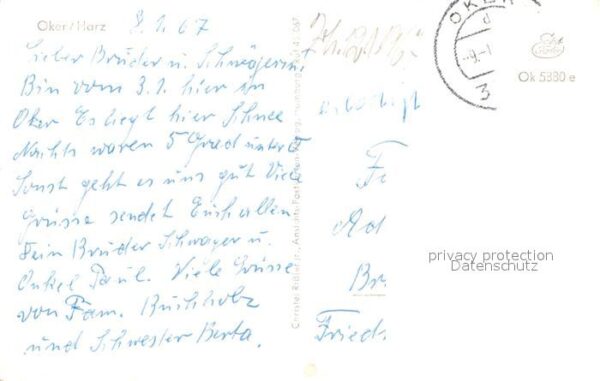 Oker / Harz
8.1.67
Lieber Bruder u. Schwägerin,
Bin vom 3.1. hier in
Oker Es liegt hier Schnee
Nachts waren 5 Grad unter 0
Sonst geht es uns gut Viele
Grüsse sendet Euch allen
Fein Bruder Schwager u.
Onkel Paul. Viele Grüsse
von Fam. Buchholz
und Schwester Berta.
OKER
3
Ok 5330 e
Fa
Ad
Br.
Fried.
privacy protection
Datenschutz